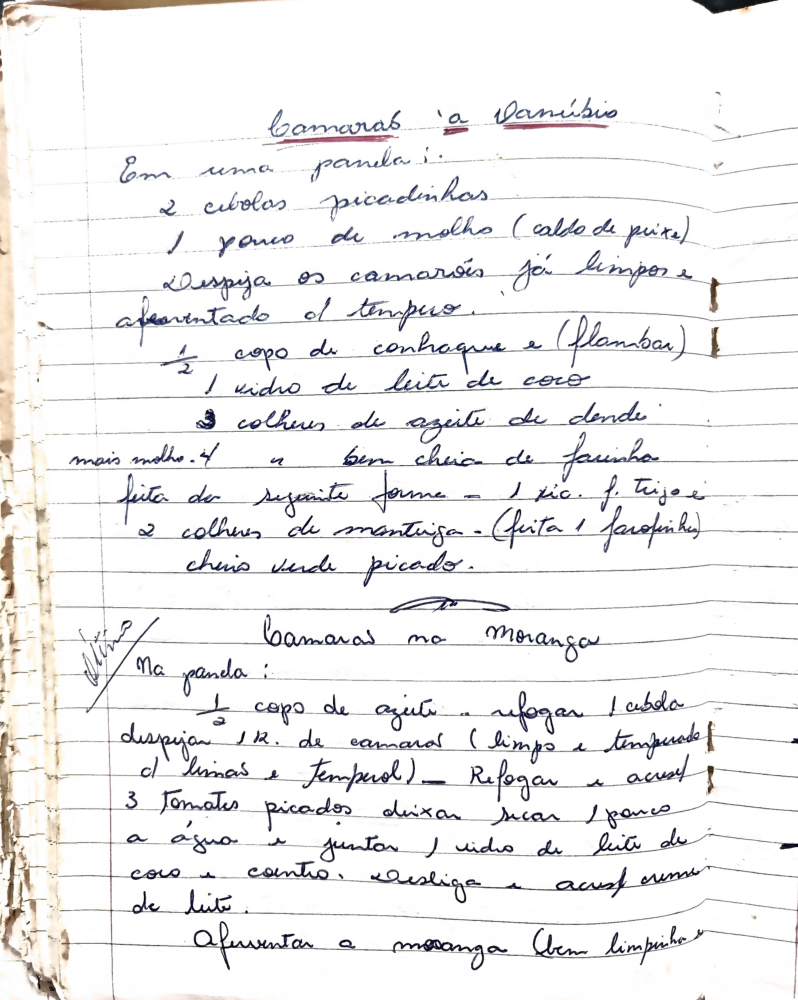 Camarão à Danúbio
Em uma panela:
2 cebolas picadinhas
1 pouco de molho (caldo de peixe)
Despeja os camarões já limpos e
afeventado c/ tempero.
1/2 copo de conhaque e (flambar)
1 vidro de leite de coco
3 colheres de azeite de dendê
mais molho. 4 " bem cheia de farinha
feita da seguinte forma - 1 xic. f. trigo e
2 colheres de manteiga - (feita 1 farofinha)
cheiro verde picado.
Camarão na Moranga
Ótimo
Na panela:
1/2 copo de azeite - refogar 1 cebola
despejar 1 k. de camarão (limpo e temperado
c/ limão e temperol) - Refogar e acresc/
3 tomates picados deixar secar 1 pouco
a água e juntar 1 vidro de leite de
coco e coentro. Desliga e acresc/ creme
de leite.
Aferventar a moranga (bem limpinha e